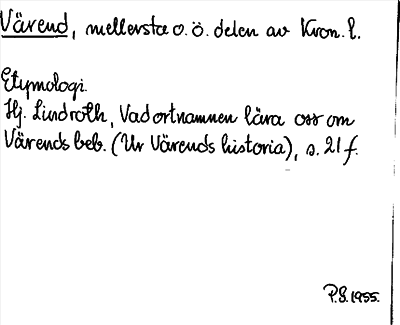 Värend, mellersta o. ö. delen av Kron. l.
Etymologi.
Hj. Lindroth, Vad ortnamnen lära oss om
Värends beb. (Ur Värends historia), s. 21 f.
P.G. 1955.